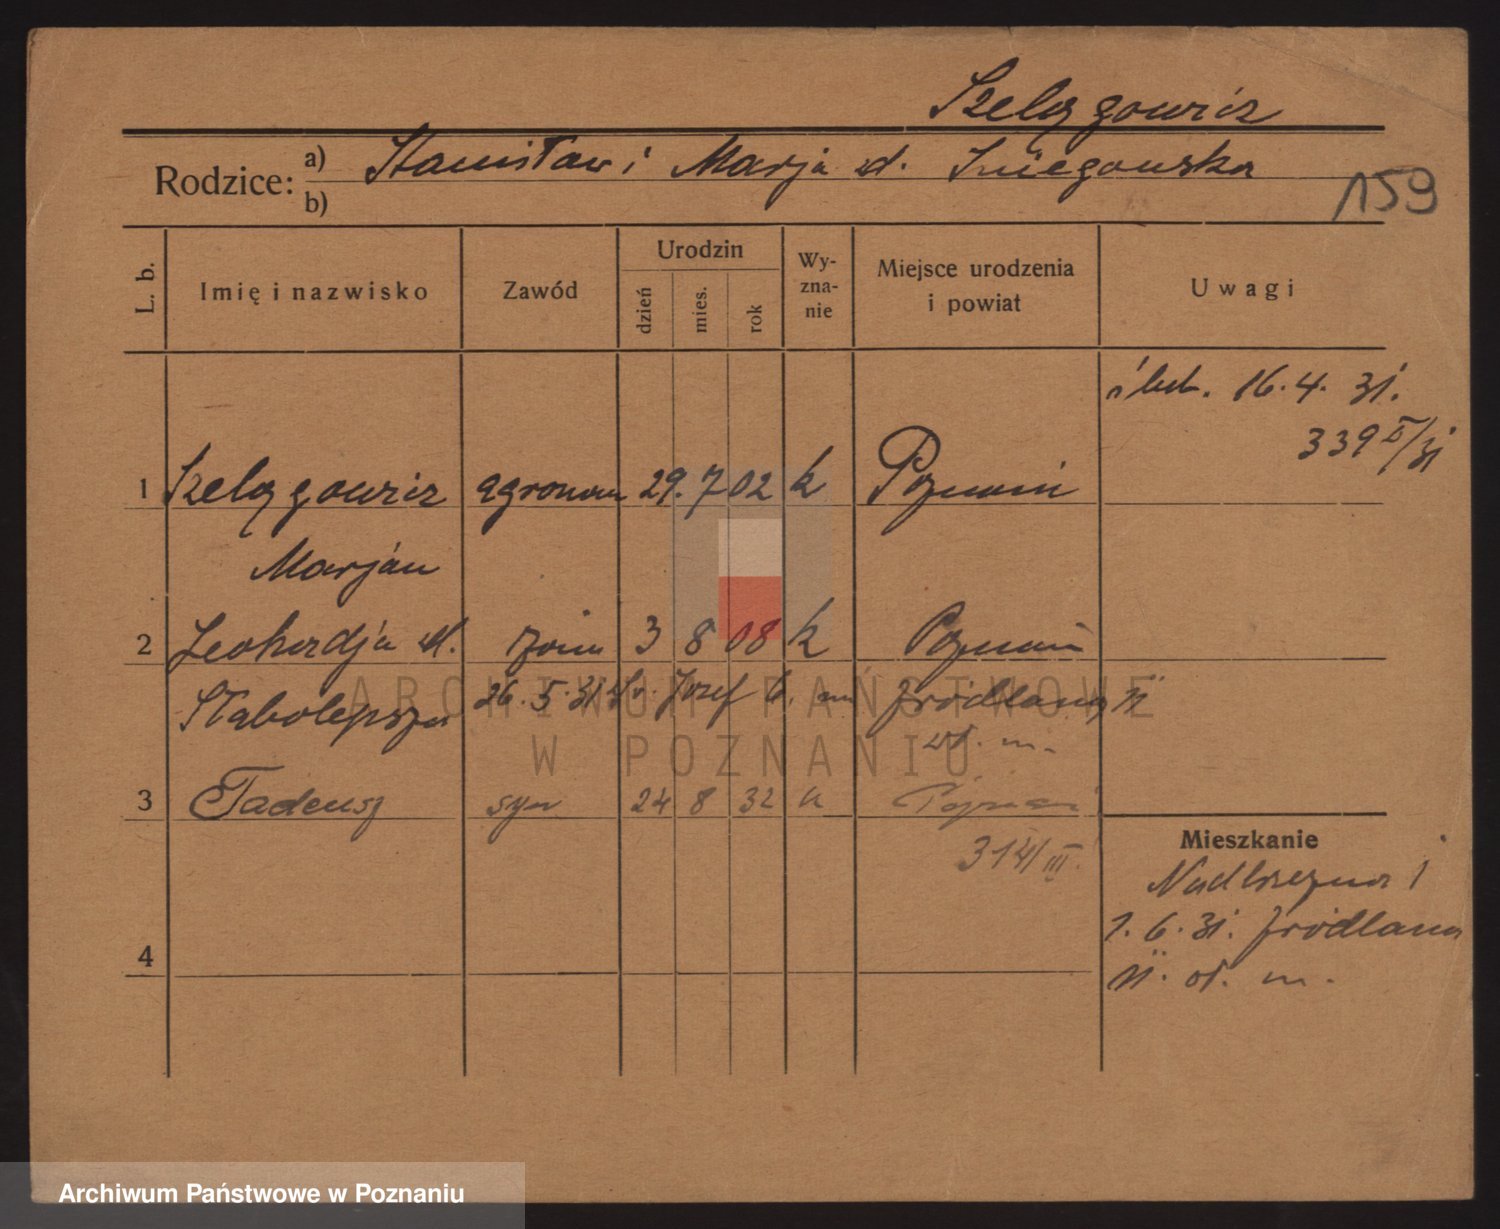 Szelągowicz
Rodzice: a) Stanisław i Marja d. Śniegowska
b)
159
L. b. Imię i nazwisko Zawód Urodzin dzień mies. rok Wy-zna-nie Miejsce urodzenia i powiat Uwagi
ślub. 16.4.31.
339 II/31
1 Szelągowicz agronom 29. 7 02 k Poznań
Marjan
2 Leokadja d. żona 3 8 08 k Poznań
Stabolepsza 26.5.31 Józef Źródlana 11
w. m.
3 Tadeusz syn 24 8 32 k Poznań
314/III.
Mieszkanie
Nadbrzeżna 1
1.6.31. Źródlana
11. w. m.
4
ARCHIWUM PAŃSTWOWE
W POZNANIU
Archiwum Państwowe w Poznaniu